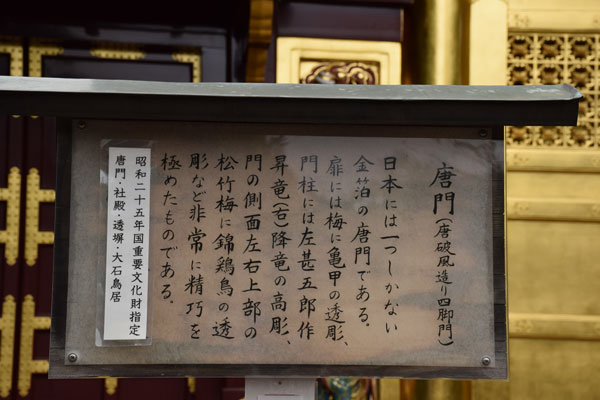 唐門(唐破風造り四脚門)
日本には一つしかない
金箔の唐門である。
扉には梅に亀甲の透彫、
門柱には左甚五郎作
昇竜(右)降竜の高彫、
門の側面左右上部の
松竹梅に錦鶏鳥の透
彫など非常に精巧を
極めたものである。
昭和二十五年国重要文化財指定
唐門・社殿・透塀・大石鳥居